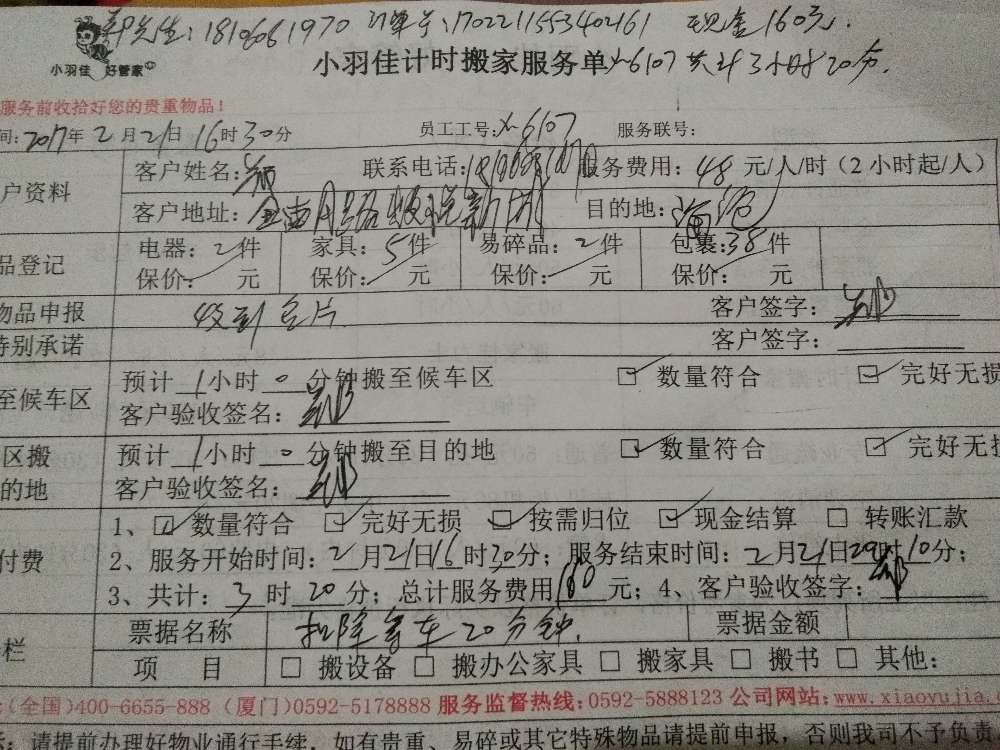 先生: 订单号: 1702211553402161 现金160元.
小羽佳 好管家
小羽佳计时搬家服务单 X-6107 共计3小时20分.
服务前收拾好您的贵重物品!
间: 2017年2月21日16时30分 员工工号: X-6107 服务联号:
户资料 客户姓名: 联系电话: 服务费用: 48 元/人/时 (2小时起/人)
客户地址: 目的地: 海沧
品登记 电器: 2件 家具: 5件 易碎品: 2件 包裹: 38件
保价: 元 保价: 元 保价: 元 保价: 元
物品申报 收到 客户签字:
特别承诺 客户签字:
至候车区 预计 1 小时 0 分钟搬至候车区 ☑ 数量符合 ☑ 完好无损
客户验收签名:
区搬 预计 1 小时 0 分钟搬至目的地 ☑ 数量符合 ☑ 完好无损
的地 客户验收签名:
1、☑ 数量符合 ☑ 完好无损 ☑ 按需归位 ☑ 现金结算 □ 转账汇款
付费 2、服务开始时间: 2月21日16时30分; 服务结束时间: 2月21日20时10分;
3、共计: 3 时 20 分; 总计服务费用 160 元; 4、客户验收签字:
栏 票据名称 扣除等车20分钟. 票据金额
项 目 □ 搬设备 □ 搬办公家具 □ 搬家具 □ 搬书 □ 其他:
(全国)400-6655-888 (厦门)0592-5178888 服务监督热线:0592-5888123 公司网站:www.xiaoyujia.
: 请提前办理好物业通行手续, 如有贵重、易碎或其它特殊物品请提前申报, 否则我司不予负责